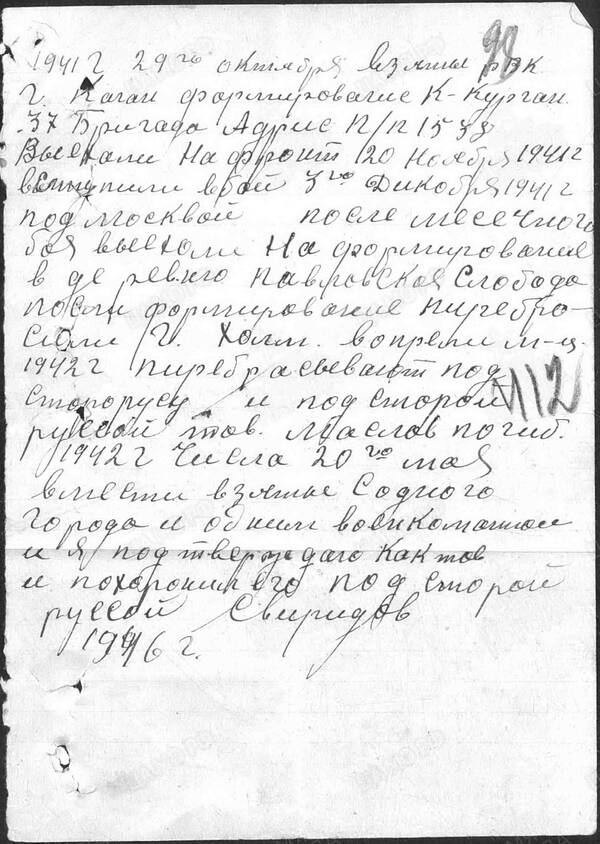 98
1941 г 29го октября взяты РВК
г. Каган формирование К-Курган.
.37 Бригада Адрис П/П 1538
Выехали На фронт 20 Ноября 1941 г
вступили вбой 3го Дикобря 1941 г
под Москвой после месечного
боя выехоли На формирование
в деревню павловская Слобода
посли формирование пиребро-
сили г. Холм. вопрели м-ц.
1942 г пиребрасывают под
староруссу и под старой 112
руссой тов. Маслов погиб.
1942 г Числа 20го мая
вмести взятые Содного
города и одним военкоматом
и я подтверждаю как тов
и похоронил его под старой
руссой Свиридов
1946 г.